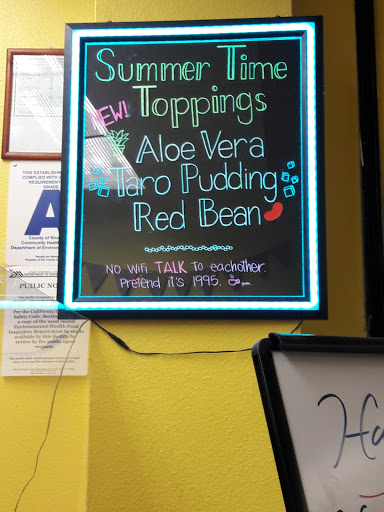 Summer Time
Toppings
NEW!
Aloe Vera
Taro Pudding
Red Bean
No Wifi TALK to eachother.
Pretend it's 1995.
THIS ESTABLIS
COMPLIED WITH
REQUIREMENT
GRADE
A
County of Riv
Community Healt
Department of Environm
PUBLIC NO
Per the California
Safety Code, Section
a copy of the most recent
Environmental Health Food
Inspection Report must be
available by this facility for
review by the public upon
request.
Ha